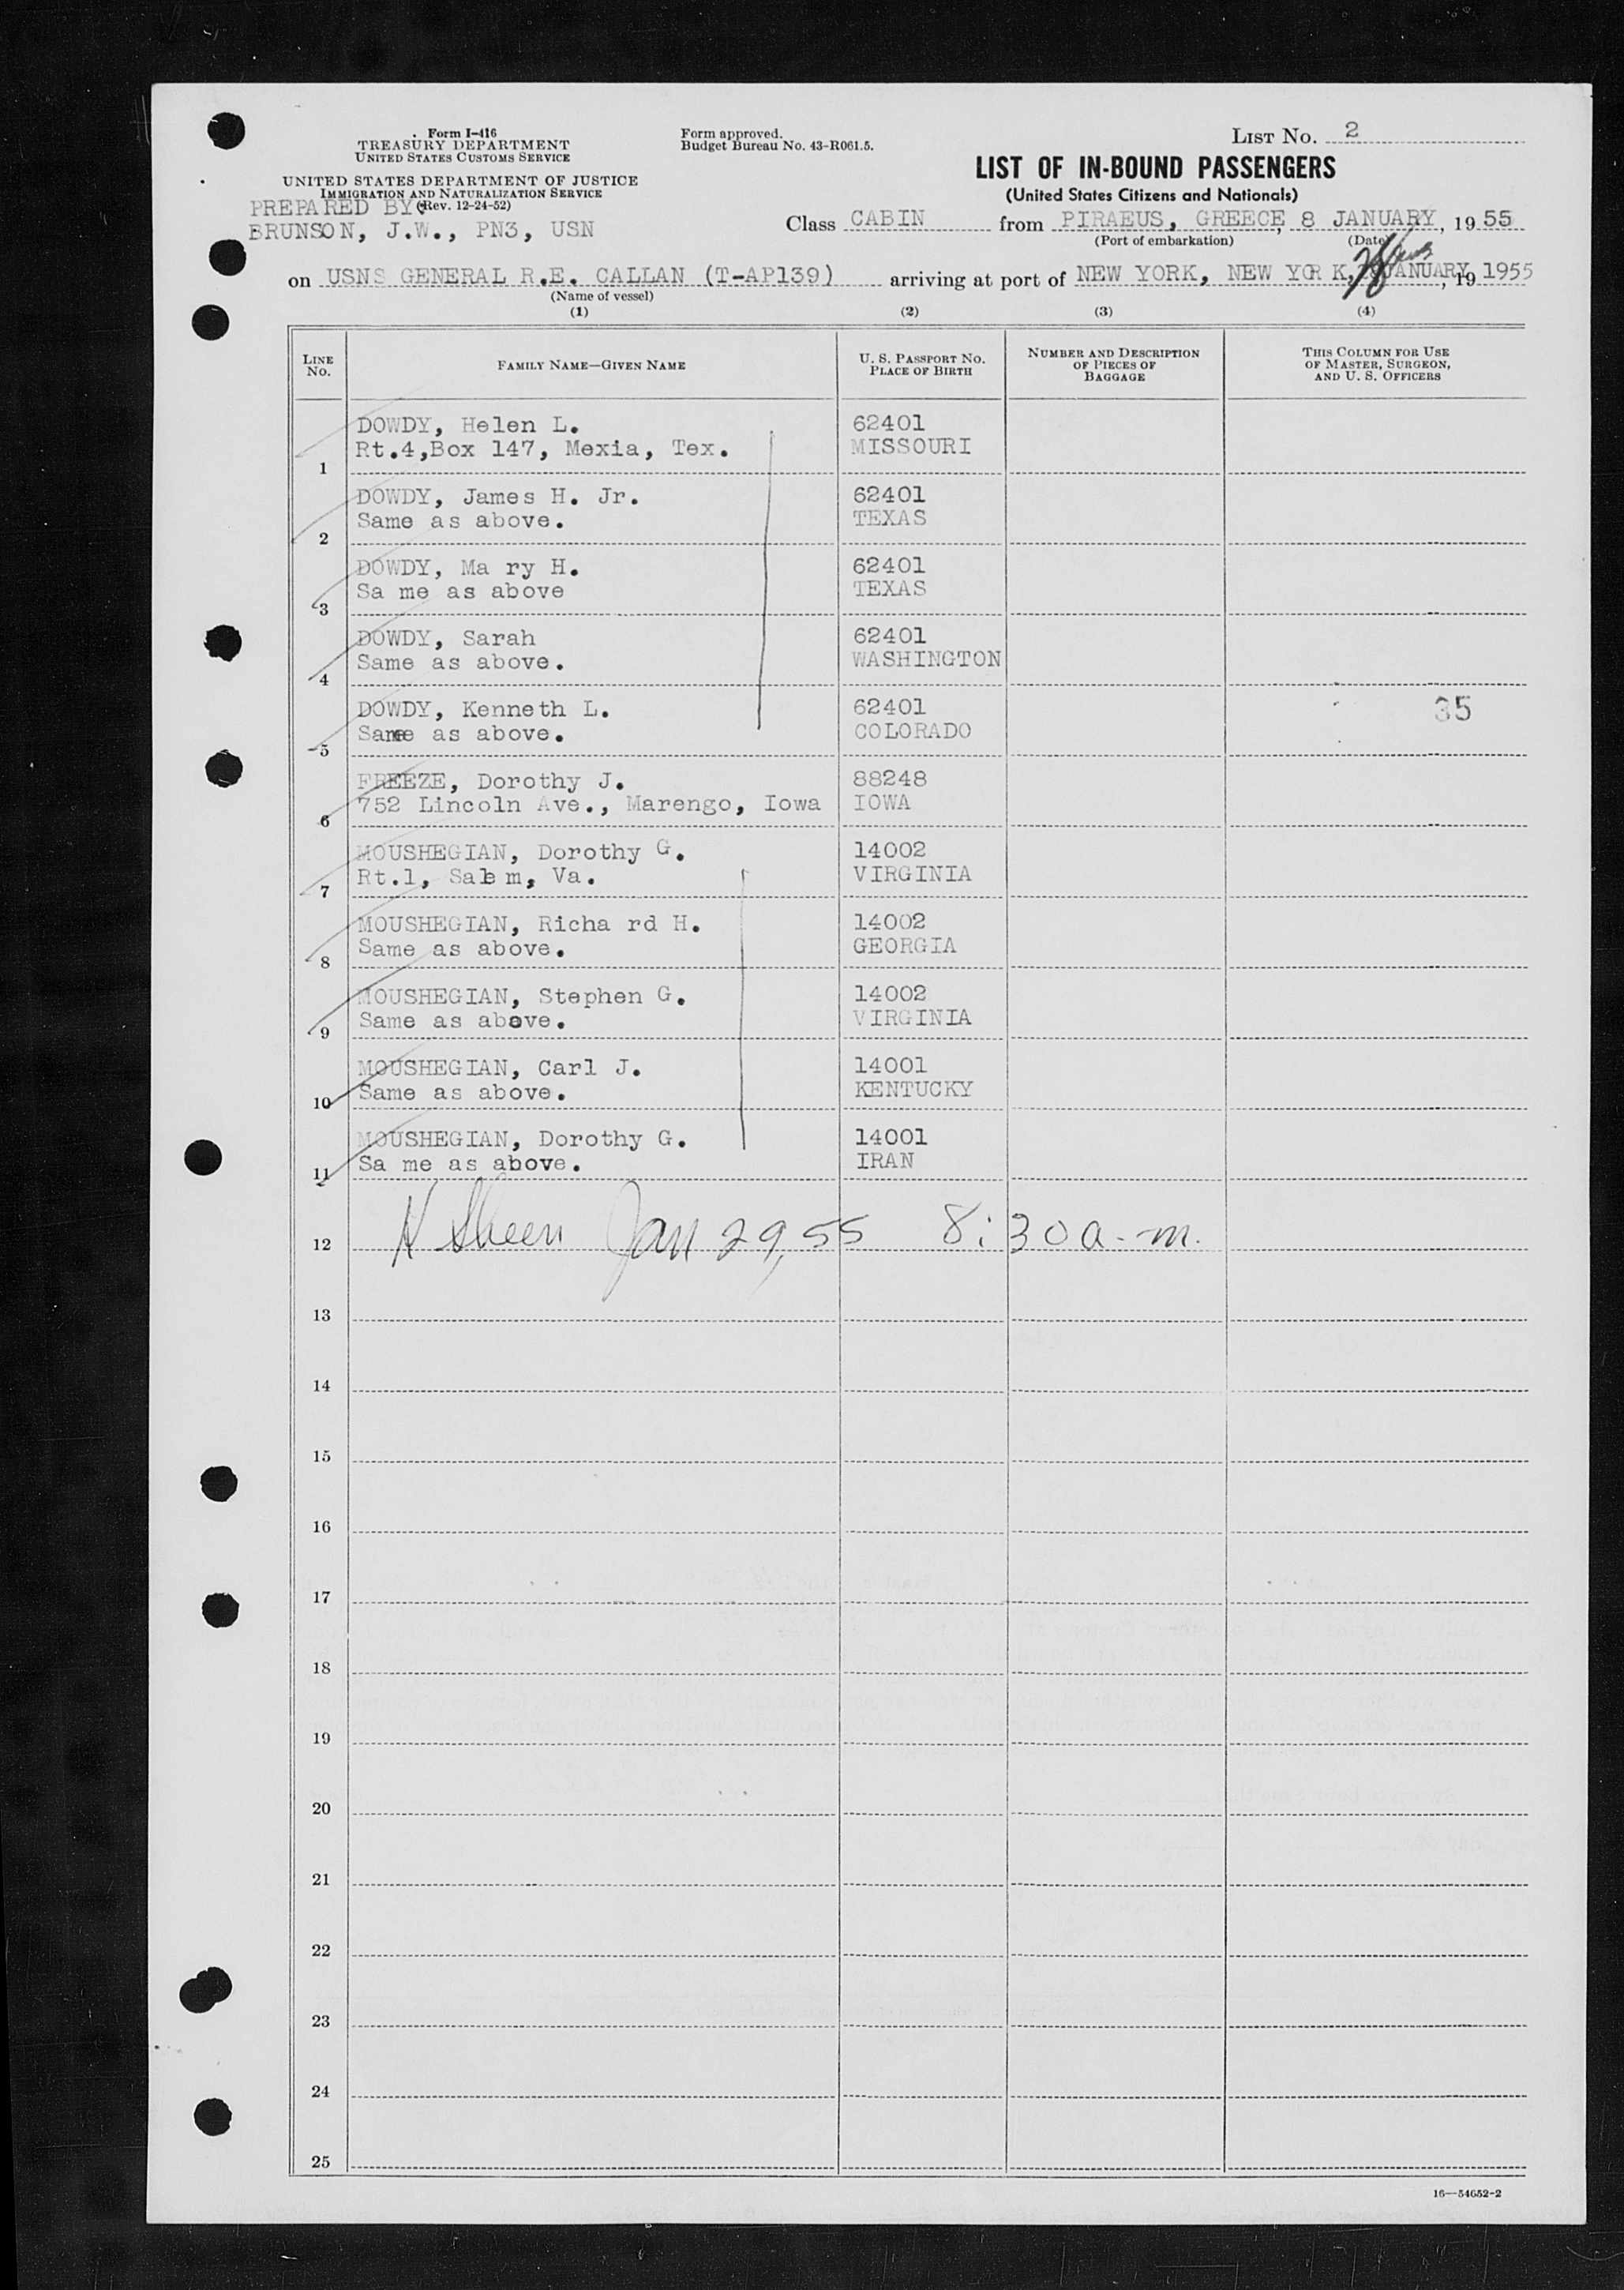 Form I-416
TREASURY DEPARTMENT
UNITED STATES CUSTOMS SERVICE
UNITED STATES DEPARTMENT OF JUSTICE
IMMIGRATION AND NATURALIZATION SERVICE
(Rev. 12-24-52)
PREPARED BY
BRUNSON, J.W., PN3, USN
Form approved.
Budget Bureau No. 43-R061.5.
LIST NO. 2
LIST OF IN-BOUND PASSENGERS
(United States Citizens and Nationals)
Class CABIN from PIRAEUS, GREECE, 8 JANUARY, 19 55
(Port of embarkation) (Date)
on USNS GENERAL R.E. CALLAN (T-AP139) arriving at port of NEW YORK, NEW YOR K, JANUARY, 19 1955
(Name of vessel)
(1) (2) (3) (4)
LINE NO. FAMILY NAME—GIVEN NAME U. S. PASSPORT NO. PLACE OF BIRTH NUMBER AND DESCRIPTION OF PIECES OF BAGGAGE THIS COLUMN FOR USE OF MASTER, SURGEON, AND U. S. OFFICERS
DOWDY, Helen L. 62401
1 Rt.4,Box 147, Mexia, Tex. MISSOURI
DOWDY, James H. Jr. 62401
2 Same as above. TEXAS
DOWDY, Ma ry H. 62401
3 Sa me as above TEXAS
DOWDY, Sarah 62401
4 Same as above. WASHINGTON
DOWDY, Kenneth L. 62401 35
5 Same as above. COLORADO
FREEZE, Dorothy J. 88248
6 752 Lincoln Ave., Marengo, Iowa IOWA
MOUSHEGIAN, Dorothy G. 14002
7 Rt.1, Salem, Va. VIRGINIA
MOUSHEGIAN, Richa rd H. 14002
8 Same as above. GEORGIA
MOUSHEGIAN, Stephen G. 14002
9 Same as above. VIRGINIA
MOUSHEGIAN, Carl J. 14001
10 Same as above. KENTUCKY
MOUSHEGIAN, Dorothy G. 14001
11 Sa me as above. IRAN
12 H Sheen Jan 29, 55 8:30 a.m.
13
14
15
16
17
18
19
20
21
22
23
24
25
16—54652-2